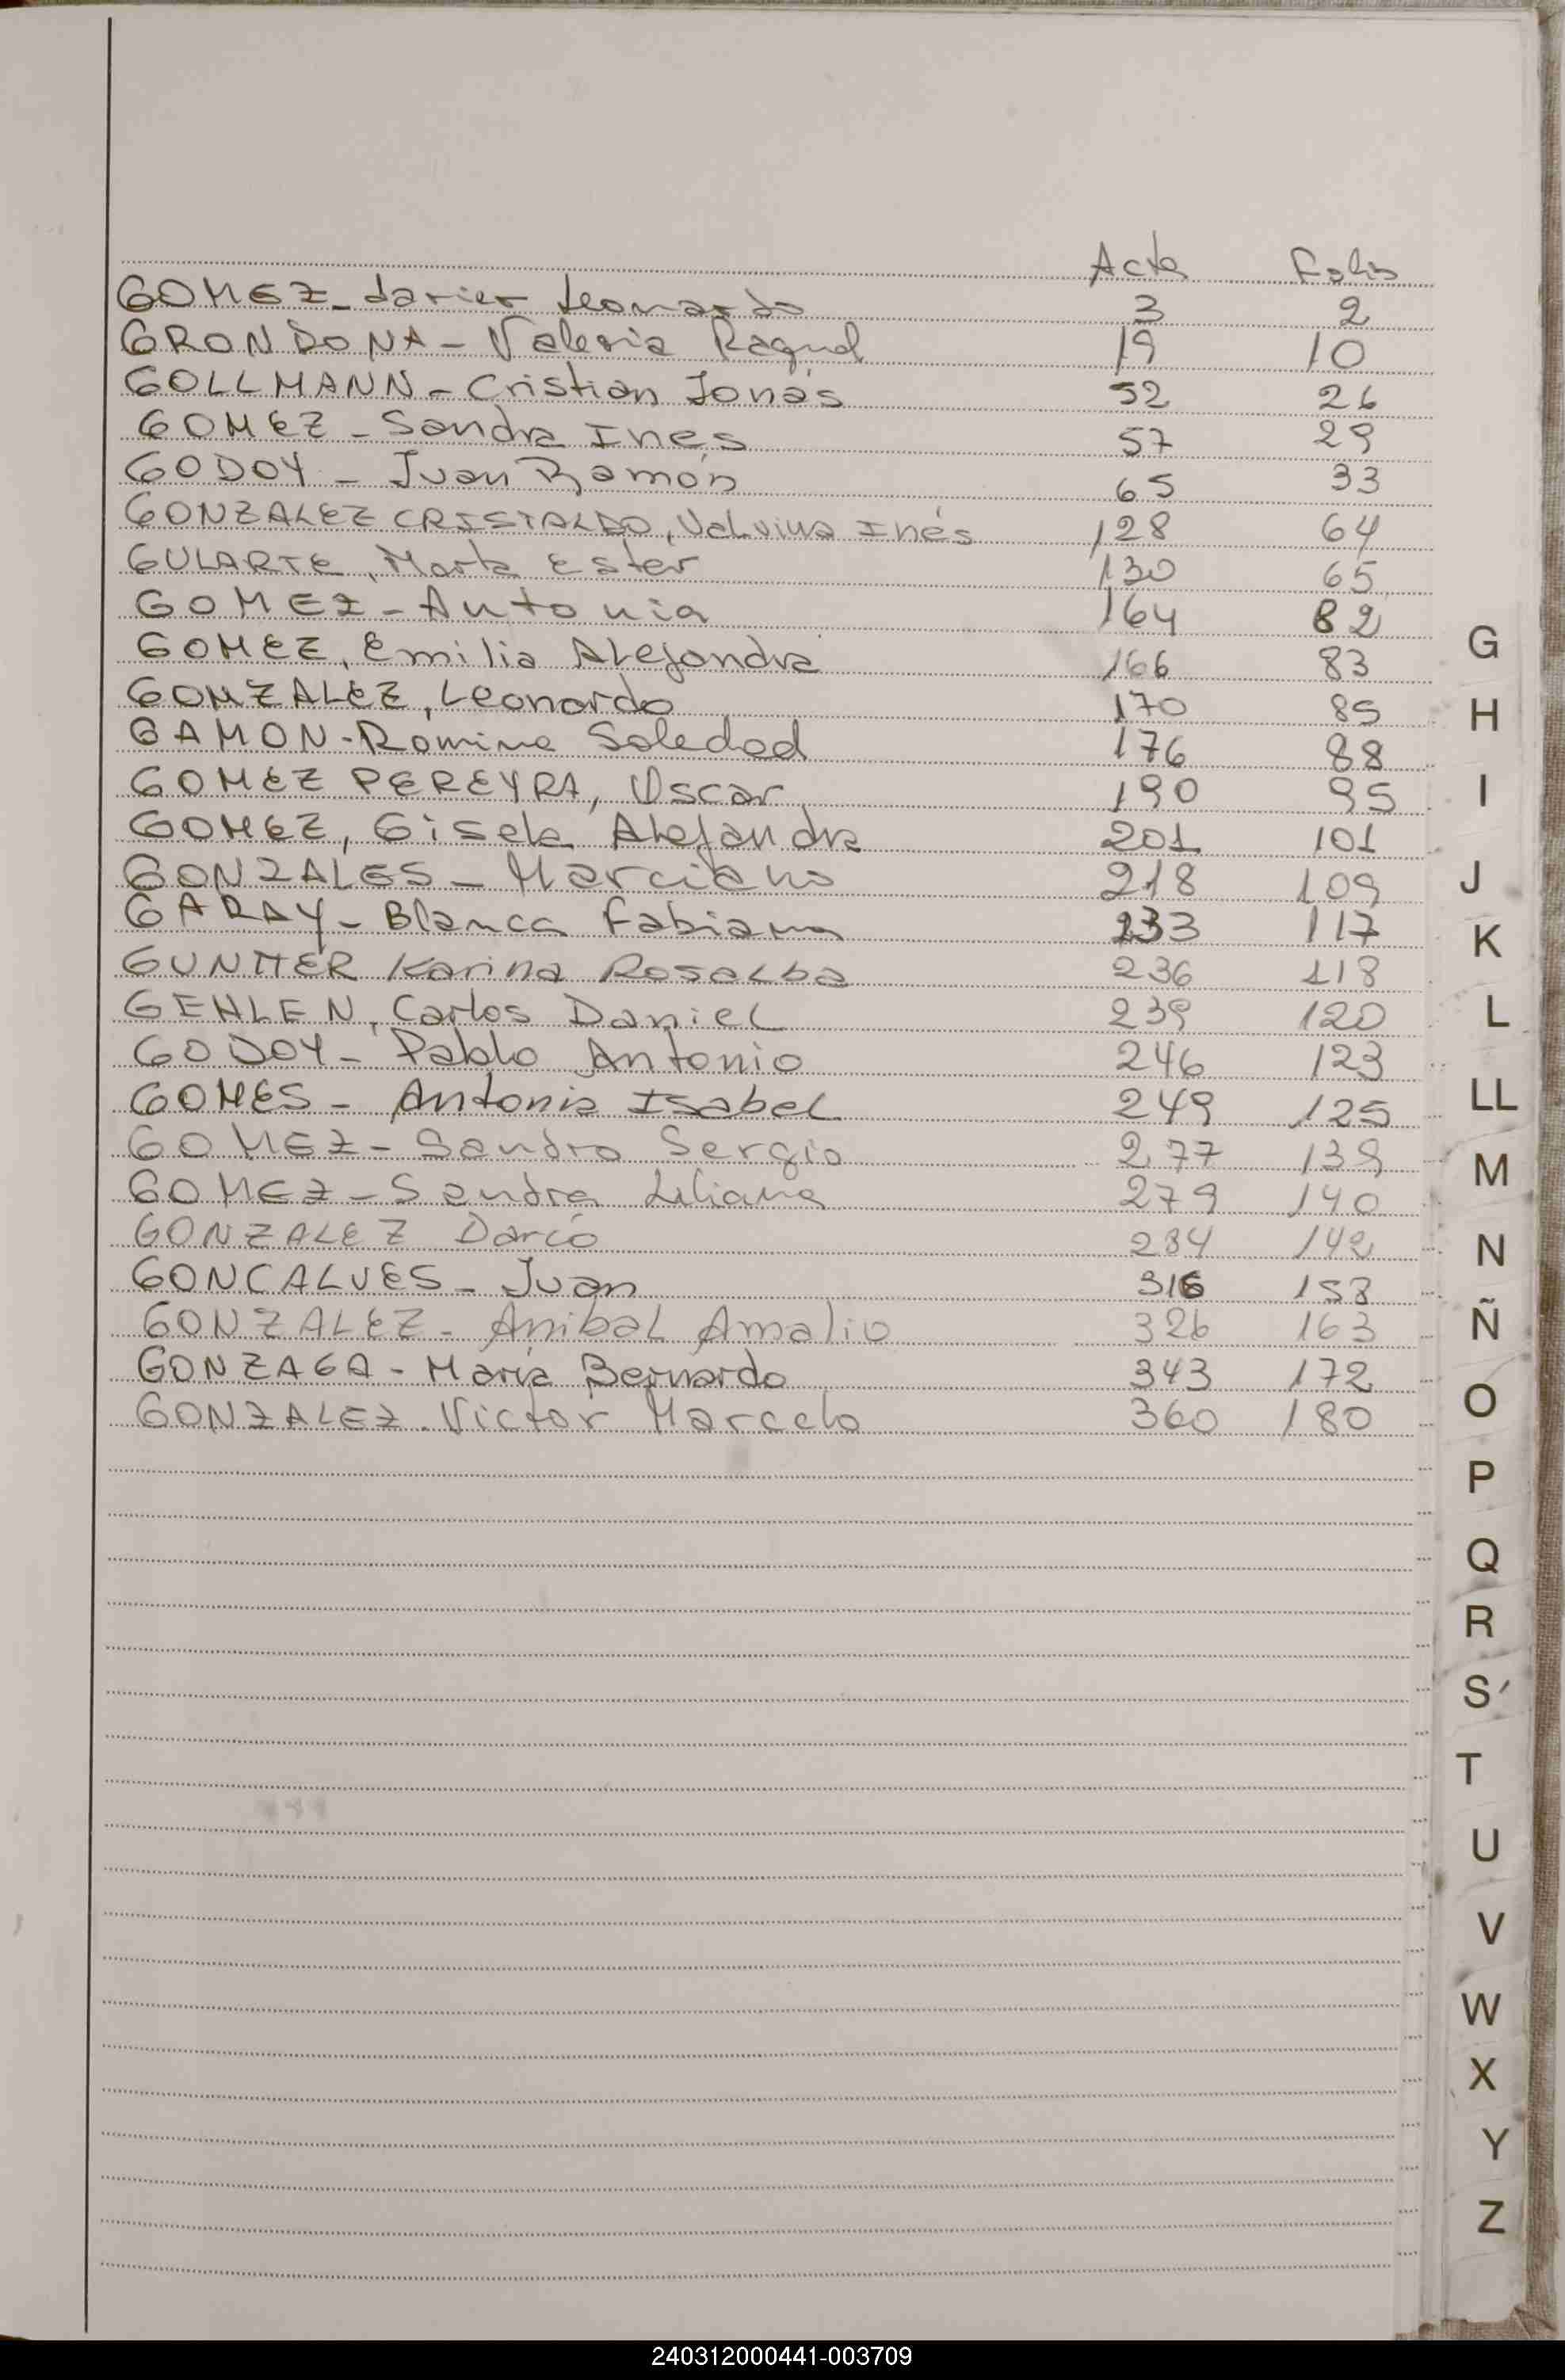 Acta Folio
GOMEZ - Javier Leonardo 3 2
GRONDONA - Valeria Raquel 19 10
GOLLMANN - Cristian Jonás 52 26
GOMEZ - Sandra Ines 57 29
GODOY - Juan Ramón 65 33
GONZALEZ CRISTALDO, Valvina Inés 128 64
GULARTE, Marta Ester 130 65
GOMEZ - Antonia 164 82
GOMEZ, Emilia Alejandra 166 83
GOMZALEZ, Leonardo 170 85
GAMON - Romina Soledad 176 88
GOMEZ PEREYRA, Oscar 190 95
GOMEZ, Gisela Alejandra 201 101
GONZALES - Marciano 218 109
GARAY - Blanca Fabiana 233 117
GUNTTER Karina Rosalba 236 118
GEHLEN, Carlos Daniel 239 120
GODOY - Pablo Antonio 246 123
GOMES - Antonia Isabel 249 125
GOMEZ - Sandro Sergio 277 139
GOMEZ - Sandra Liliana 279 140
GONZALEZ Darío 284 142
GONCALVES - Juan 316 158
GONZALEZ - Anibal Amalio 326 163
GONZAGA - María Bernarda 343 172
GONZALEZ. Victor Marcelo 360 180
G
H
I
J
K
L
LL
M
N
Ñ
O
P
Q
R
S
T
U
V
W
X
Y
Z
240312000441-003709